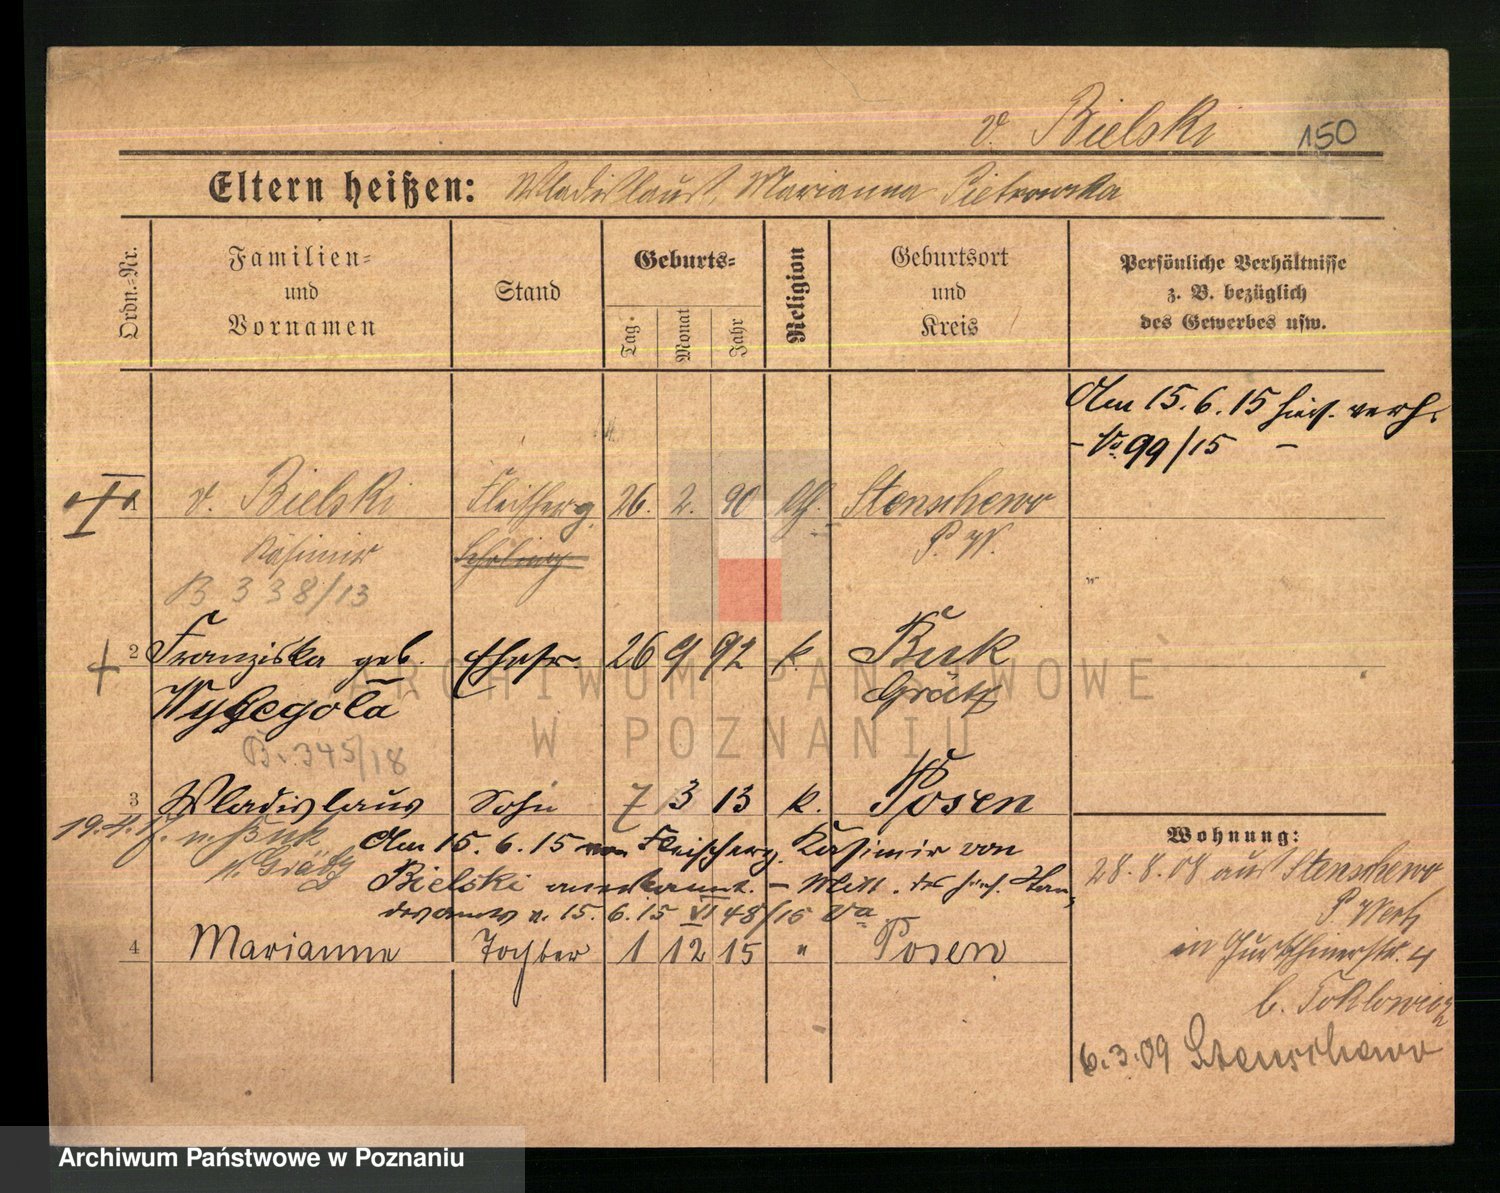 v. Bielski 150
Eltern heißen: Wladislaus, Marianna Pietrowska
Ordn.-Nr.
Familien-
und
Vornamen
Stand
Geburts-
Tag
Monat
Jahr
Religion
Geburtsort
und
Kreis
Persönliche Verhältnisse
z. B. bezüglich
des Gewerbes usw.
Am 15.6.15 hies. verh.
99/15 –
1 v. Bielski Fleischerg. 26. 2. 90 kth. Stenschewo
Kasimir P. W.
B 338/13
2 Franziska geb. Ehefr. 26 9 92 k Buk
Grätz
B. 345/18
3 Wladislaus Sohn 7 3 13 k. Posen
19.4.17. n. Buk
Kr. Grätz
Am 15. 6. 15 Fleischerg. Kasimir von
Bielski anerkannt. – Mitt. des hies. Stan-
desamts v. 15. 6. 15 VI 48/15
4 Marianna Tochter 1 12 15 " Posen
Wohnung:
28.8.08 aus Stenschewo
P. West
in 4
b.
6.3.09 Stenschewo
ARCHIWUM PAŃSTWOWE
W POZNANIU
Archiwum Państwowe w Poznaniu